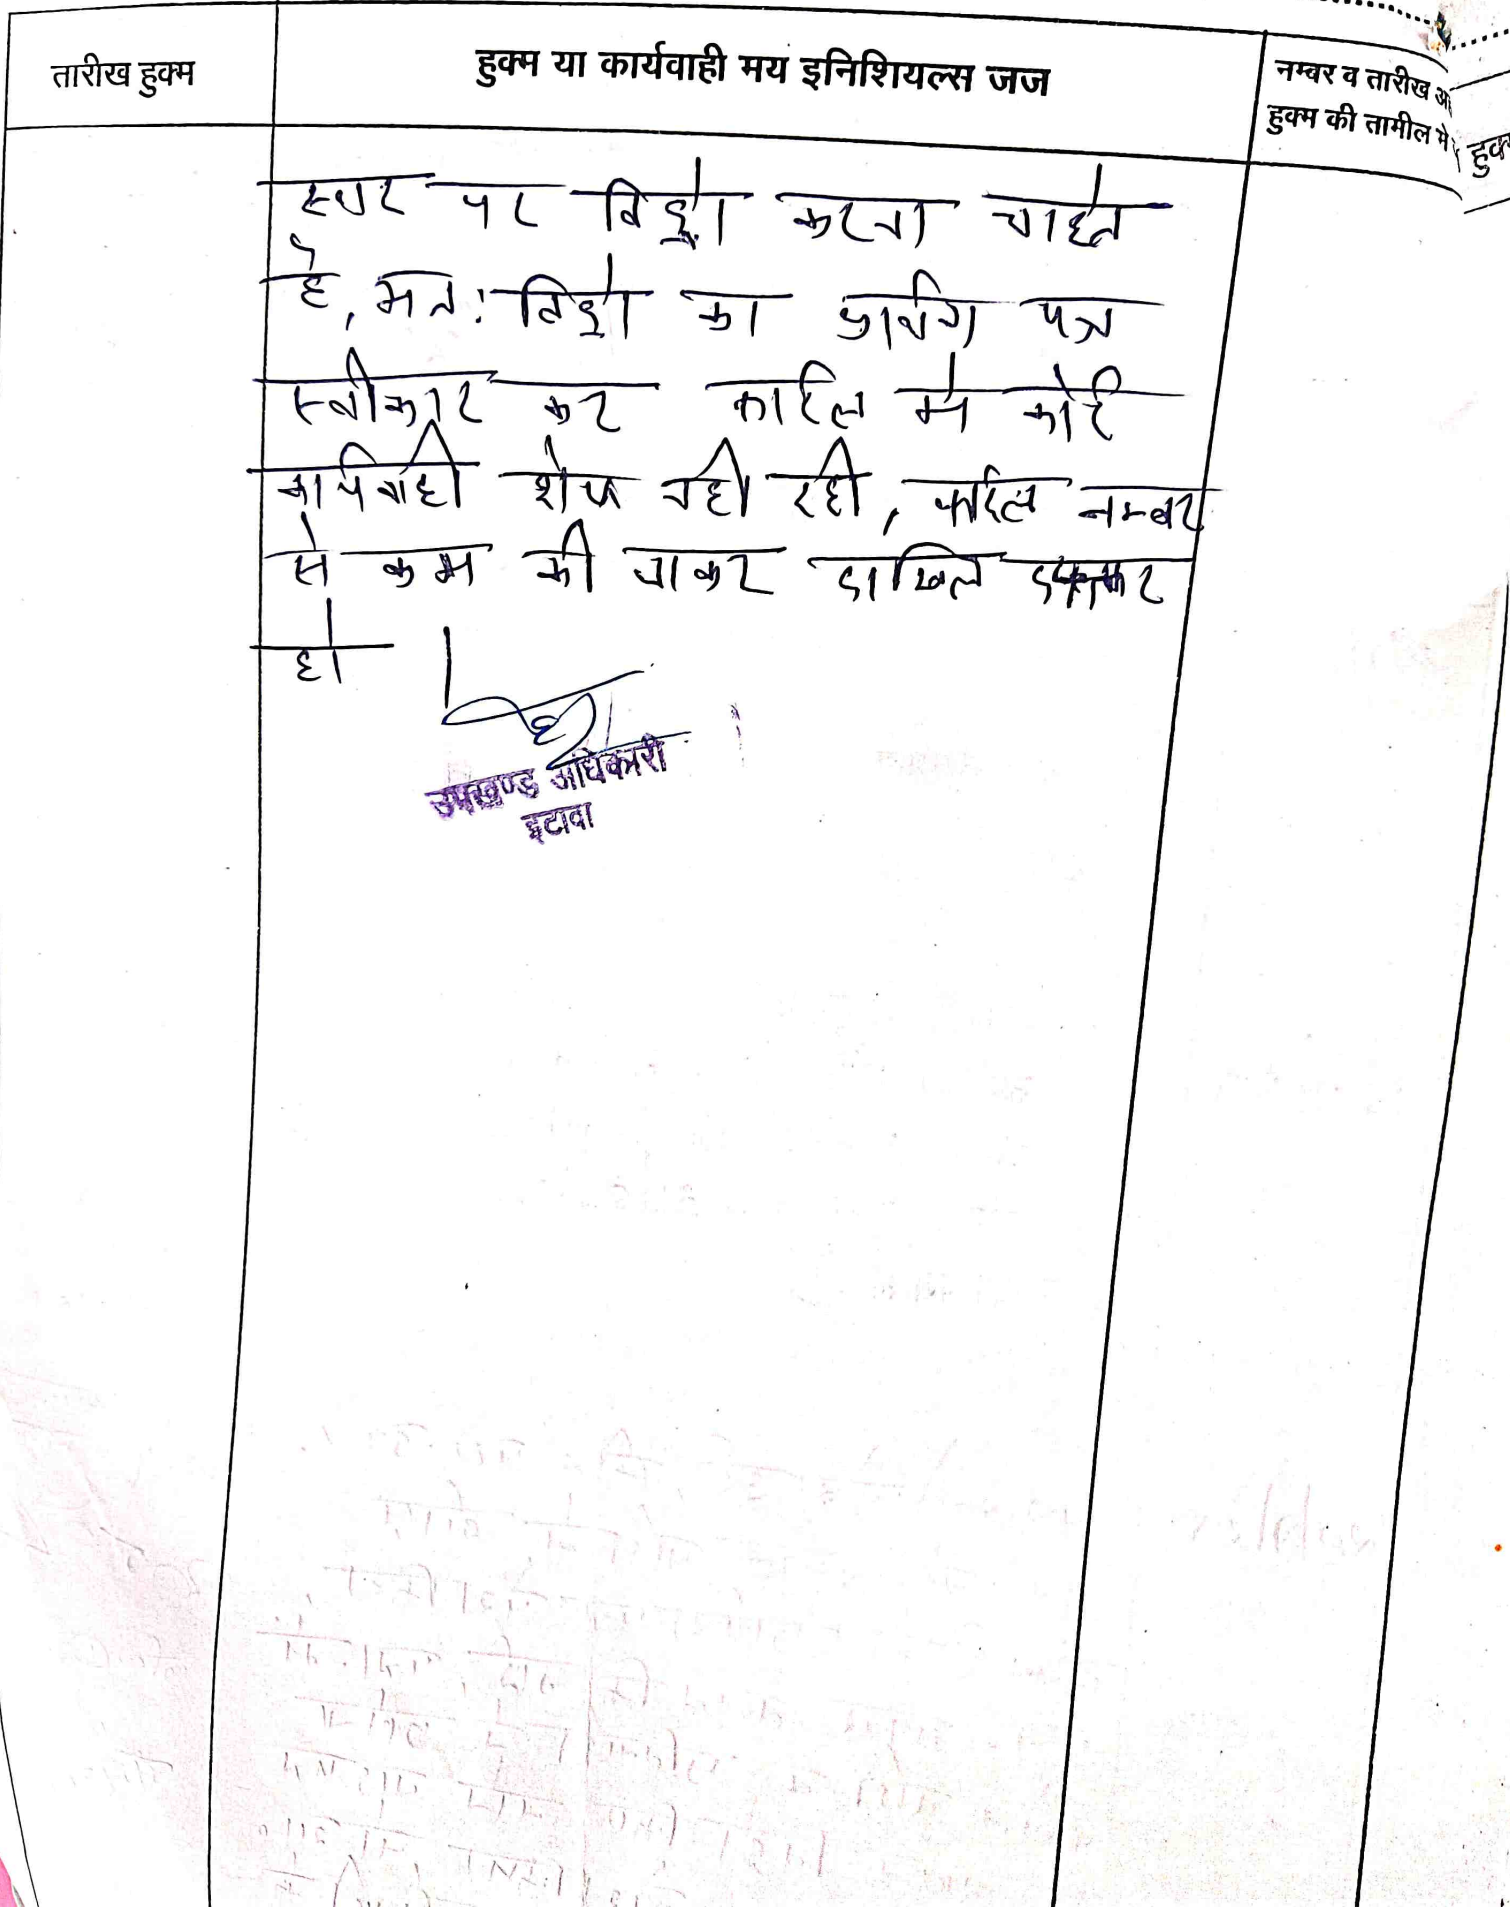 तारीख हुक्म
हुक्म या कार्यवाही मय इनिशियल्स जज
नम्बर व तारीख
हुक्म की तामील में
स्तर पर विड्रो करना चाहते
है, अतः विड्रो का प्रार्थना पत्र
स्वीकार कर फाईल में कोई
कार्यवाही शेष नही रही, फाईल नम्बर
से कम की जाकर दाखिल दफ्तर
हो
उपखण्ड अधिकारी
इटावा